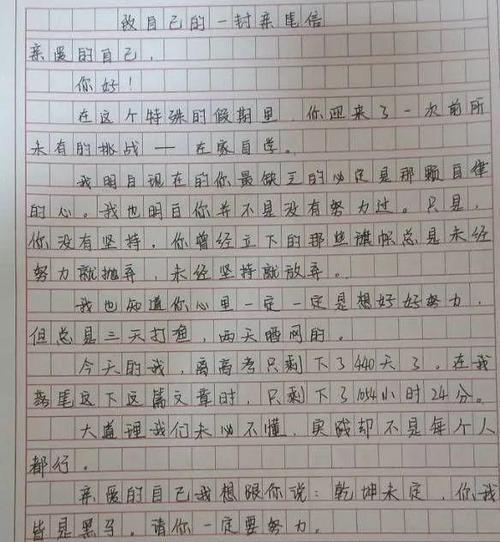 致自己的一封亲笔信
亲爱的自己,
你好!
在这个特殊的假期里,你迎来了一次前所
未有的挑战——在家自学。
我明白现在的你最缺乏的必定是那颗自律
的心。我也明白你并不是没有努力过。只是,
你没有坚持,你曾经立下的那些旗帜总是未经
努力就抛弃,未经坚持就放弃。
我也知道你心里一定一定是想好好努力,
但总是三天打渔,两天晒网的。
今天的我,离高考只剩下了440天了。在我
落笔这下这篇文章时,只剩下了1054小时24分。
大道理我们未必不懂,实践却不是每个人
都行。
亲爱的自己我想跟你说:乾坤未定,你我
皆是黑马。请你一定要努力。